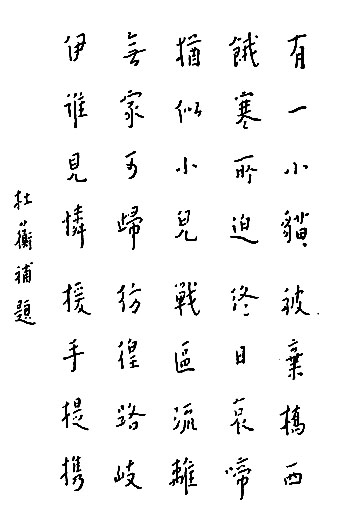 有一小貓被棄橋西
餓寒所迫終日哀啼
猶似小兒戰區流離
無家可歸彷徨路岐
伊誰見憐援手提携
杜蘅補題